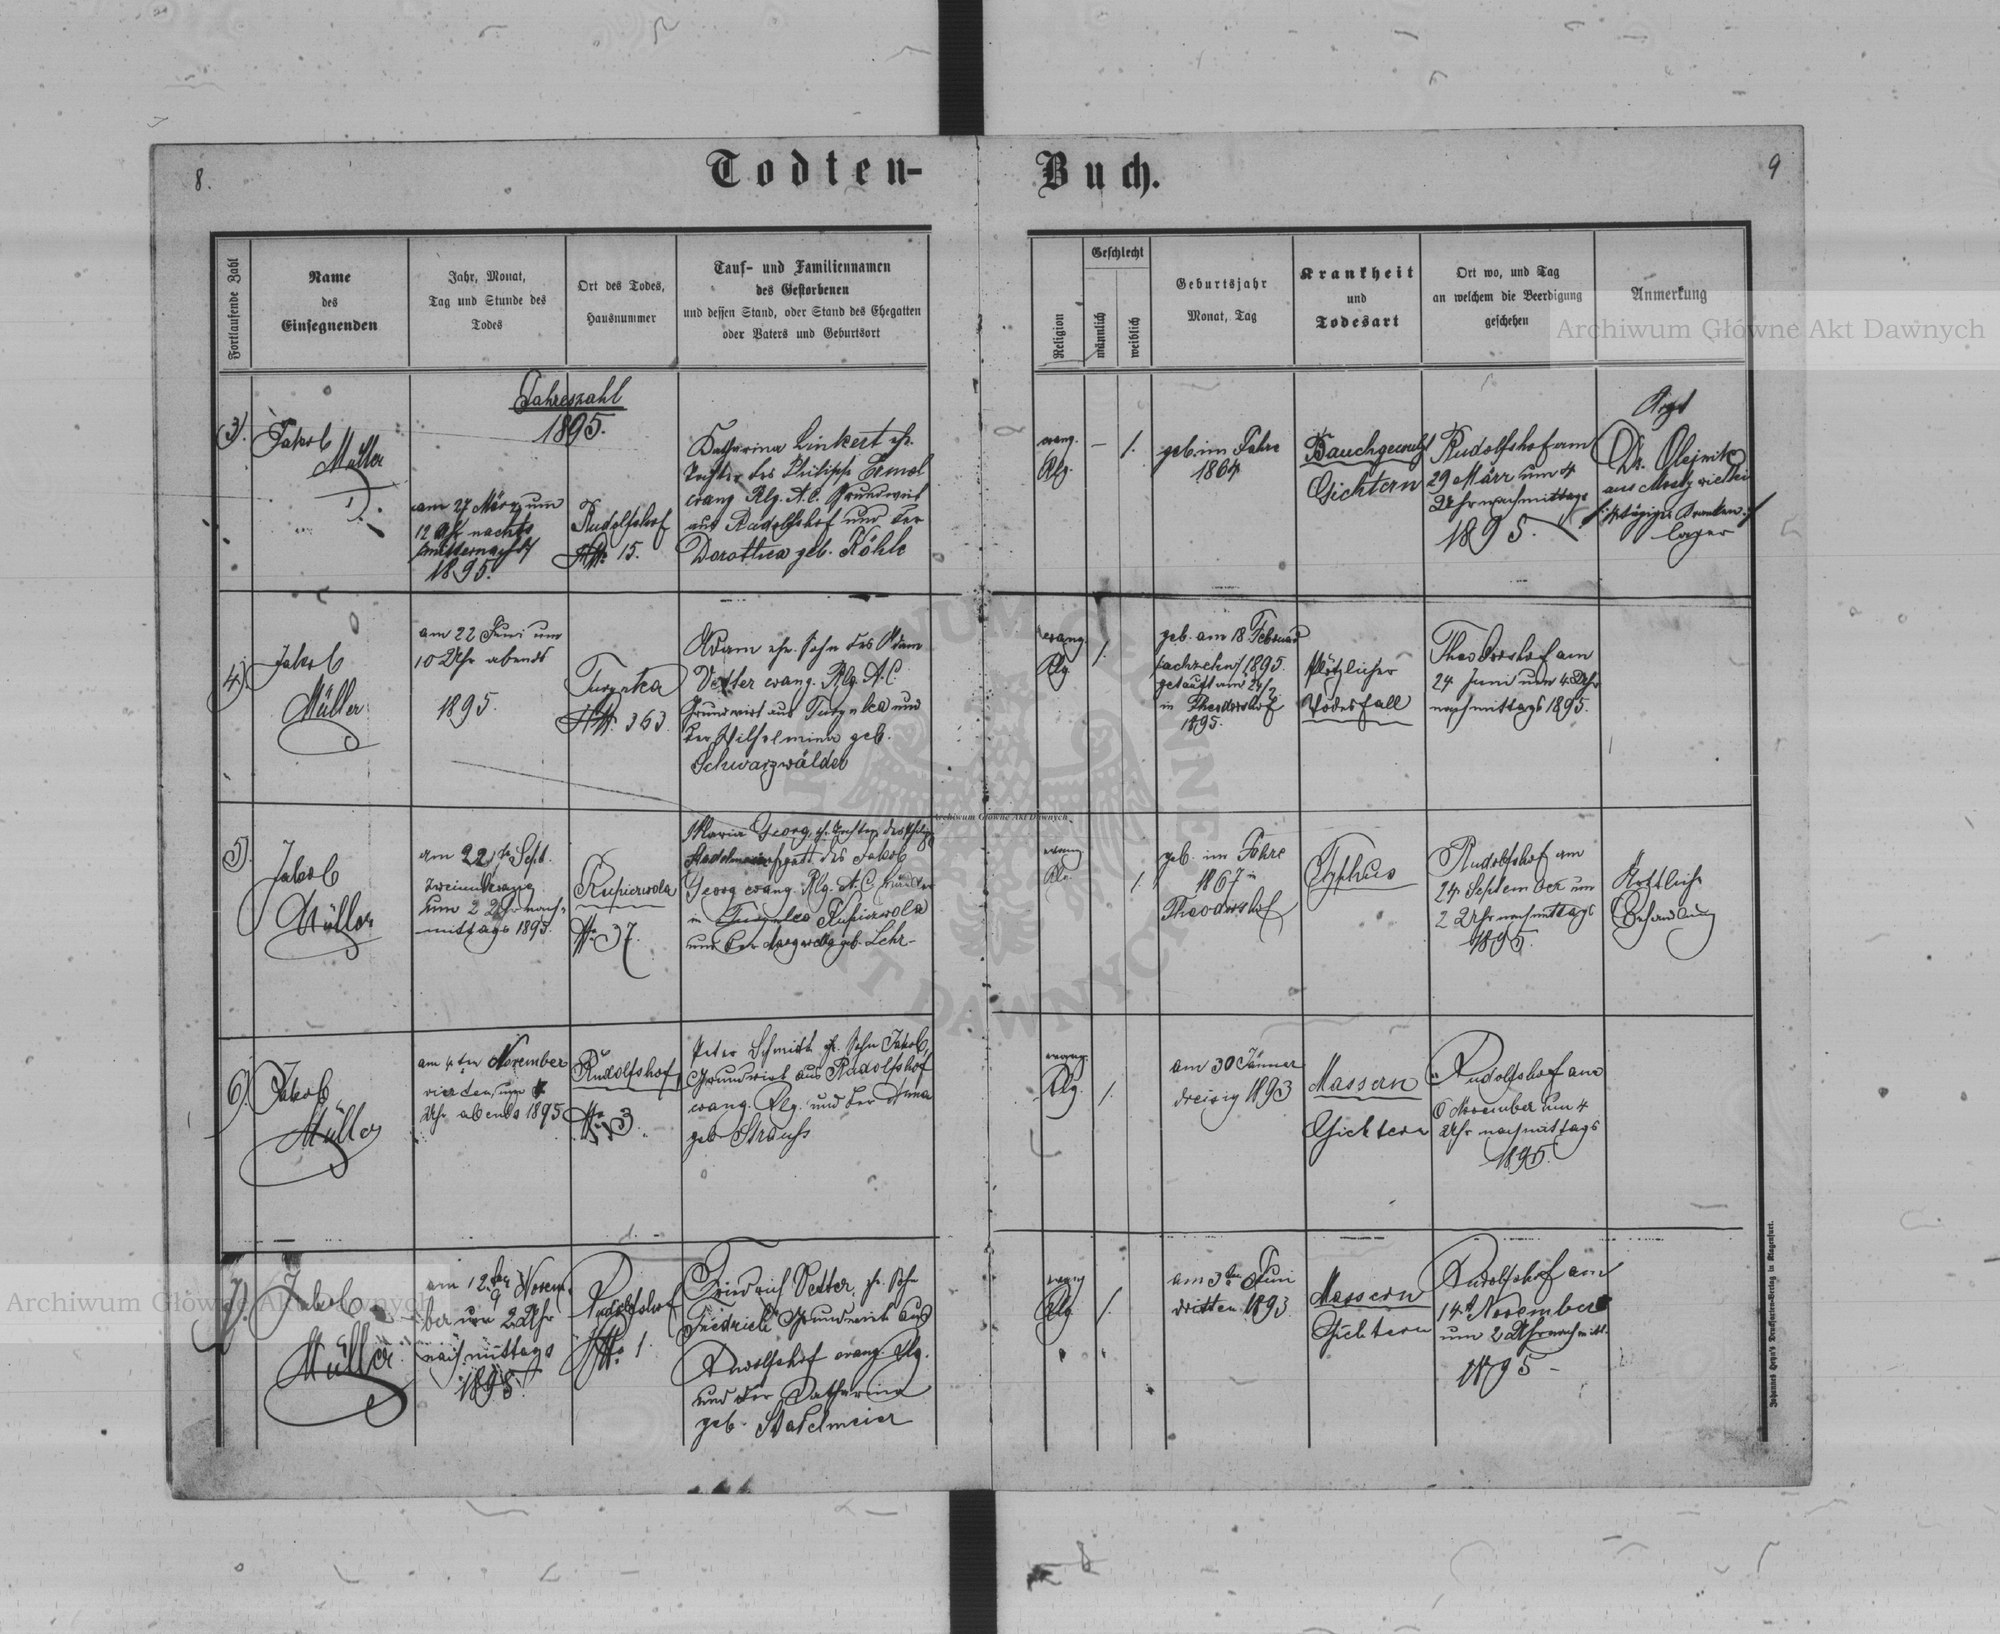 8.
Todten-
Buch.
9
Fortlaufende Zahl
Name
des
Einsegnenden
Jahr, Monat,
Tag und Stunde des
Todes
Ort des Todes,
Hausnummer
Tauf- und Familiennamen
des Gestorbenen
und dessen Stand, oder Stand des Ehegatten
oder Vaters und Geburtsort
Religion
Geschlecht
männlich
weiblich
Geburtsjahr
Monat, Tag
Krankheit
und
Todesart
Ort wo, und Tag
an welchem die Beerdigung
geschehen
Anmerkung
Archiwum Główne Akt Dawnych
Jahreszahl
1895.
3).
Jakob
Müller
am 27 März um
12 Uhr nachts
1895.
Rudolfshof
15.
Katharina Linkert eh.
Tochter des Philipp
evang. Rlg. A.C. Grundwirt
aus Rudolfshof und der
Dorothea geb. Köhle
evang.
Rlg.
– 1.
geb. im Jahre
1864
Gichtern
Rudolfshof am
29 März um 4
Uhr nachmittags
1895.
Arzt
Dr. Olejnik
aus Mosty wielkie
Kranken-
lager
4).
Jakob
Müller
am 22 Juni um
10 Uhr abends
1895.
Turynka
363.
Adam eh. Sohn des Adam
Vetter evang. Rlg. A.C.
Grundwirt aus Turynka und
der Wilhelmina geb.
Schwarzwälder
evang.
Rlg.
1.
geb. am 18 Februar
achzehn 1895.
getauft am 24/2.
in Theodorshof
1895.
Plötzlicher
Todesfall
Theodorshof am
24 Juni um 4 Uhr
nachmittags 1895.
5).
Jakob
Müller
am 22 Sept.
zweiundzwanzig
um 2 Uhr nach-
mittags 1895.
Kupiczwola
37.
Maria Georg, eh. Tochter des Philipp
des Jakob
Georg evang. Rlg. A.C.
in Turynka Kupiczwola
und der geb. Lehr-
evang
Rlg.
1.
geb. im Jahre
1867 in
Theodorshof
Typhus
Rudolfshof am
24 September um
2 Uhr nachmittags
1895.
Ärztliche
Behandlung
6).
Jakob
Müller
am 4ten November
vierten um
Uhr abends 1895
Rudolfshof
13.
Peter Schmidt eh. Sohn Jakob,
Grundwirt aus Rudolfshof
evang. Rlg. und der Anna
geb. Strauß
evang.
Rlg.
1.
am 30 Jänner
dreisig 1893
Massern
Gichtern
Rudolfshof am
6 November um 4
Uhr nachmittags
1895.
7).
Jakob
Müller
am 12ten Novem-
ber um 2 Uhr
nachmittags
1895.
Rudolfshof
1.
Friedrich Vetter, eh. Sohn
Friedrich Grundwirt aus
Rudolfshof evang. Rlg.
und der Katharina
geb. Stadelmeier
evang
Rlg.
1.
am 3ten Juni
dritten 1893
Massern
Gichtern
Rudolfshof am
14 November
um 2 Uhr nachmitt.
1895
Johannes Heyn's Drucksorten-Verlag in Klagenfurt.
Archiwum Główne Akt Dawnych
Archiwum Główne Akt Dawnych